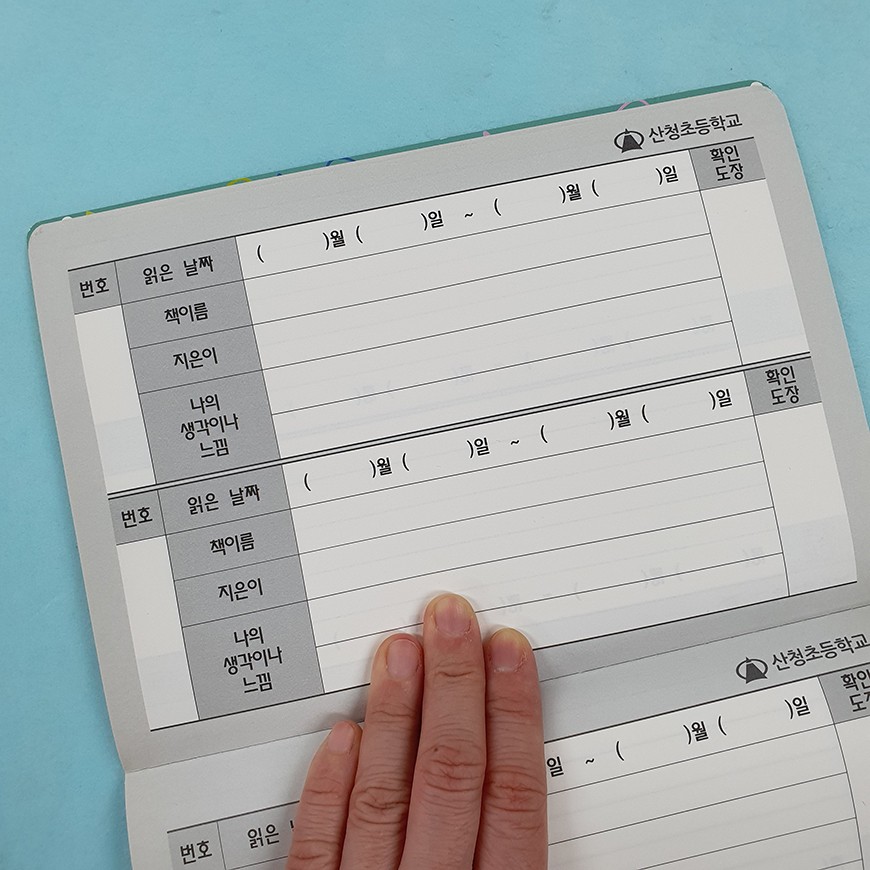 산청초등학교
번호 읽은 날짜 ( )월 ( )일 ~ ( )월 ( )일 확인
도장
책이름
지은이
나의
생각이나
느낌
번호 읽은 날짜 ( )월 ( )일 ~ ( )월 ( )일 확인
도장
책이름
지은이
나의
생각이나
느낌
산청초등학교
번호 읽은 일 ~ ( )월 ( )일 확인